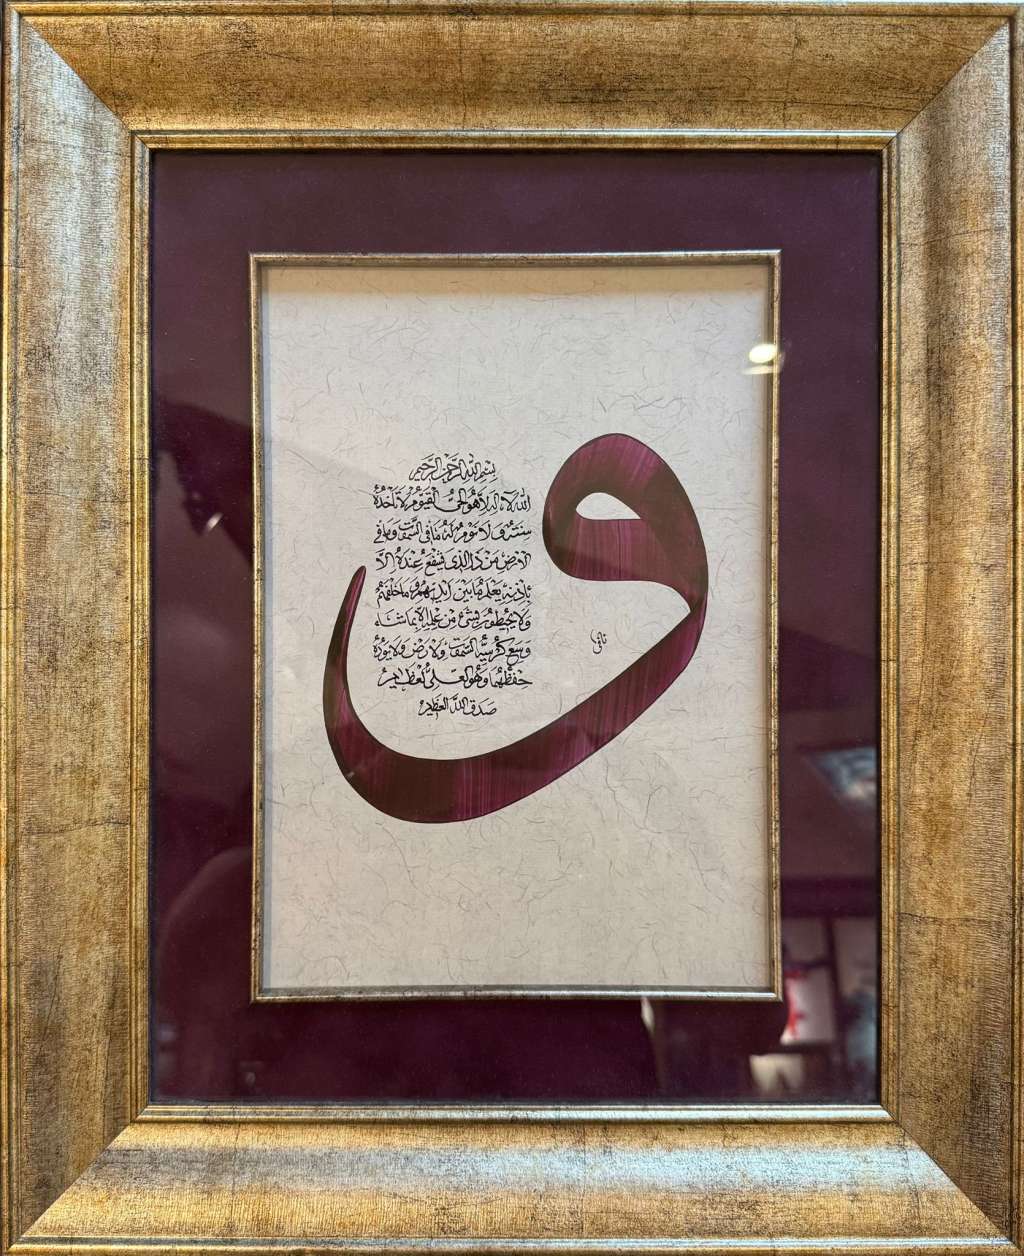 بِسْمِ اللّٰهِ الرَّحْمٰنِ الرَّحِيمِ
اللّٰهُ لَا اِلٰهَ اِلَّا هُوَ الْحَىُّ الْقَيُّومُ لَا تَأْخُذُهُ
سِنَةٌ وَلَا نَوْمٌ لَهُ مَا فِى السَّمٰوَاتِ وَمَا فِى
الْاَرْضِ مَنْ ذَا الَّذِى يَشْفَعُ عِنْدَهُ اِلَّا
بِاِذْنِهِ يَعْلَمُ مَا بَيْنَ اَيْدِيهِمْ وَمَا خَلْفَهُمْ
وَلَا يُحِيطُونَ بِشَىْءٍ مِنْ عِلْمِهِ اِلَّا بِمَا شَاءَ
وَسِعَ كُرْسِيُّهُ السَّمٰوَاتِ وَالْاَرْضَ وَلَا يَؤُدُهُ
حِفْظُهُمَا وَهُوَ الْعَلِىُّ الْعَظِيمُ
صَدَقَ اللّٰهُ الْعَظِيمُ
و